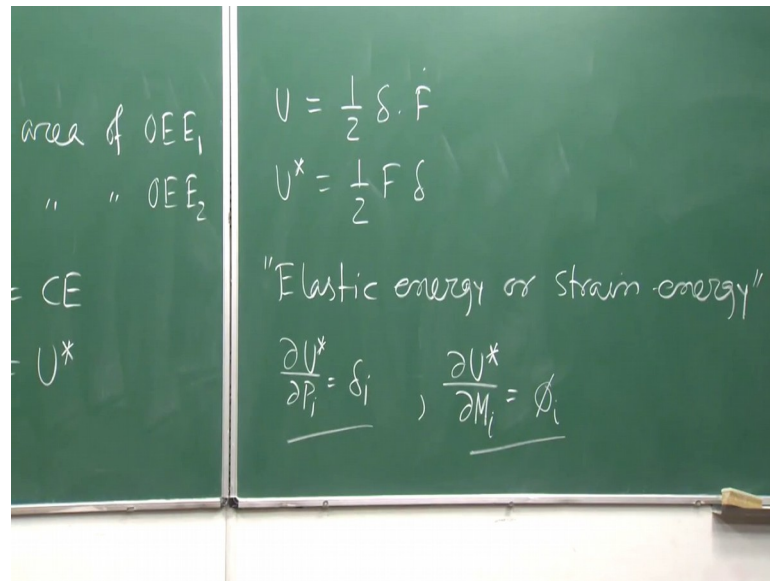 area of OEE₁
" " OEE₂
= CE
= U*
U = 1/2 δ . F
U* = 1/2 F δ
"Elastic energy or strain energy"
∂U*/∂Pᵢ = δᵢ , ∂U*/∂Mᵢ = ϕᵢ